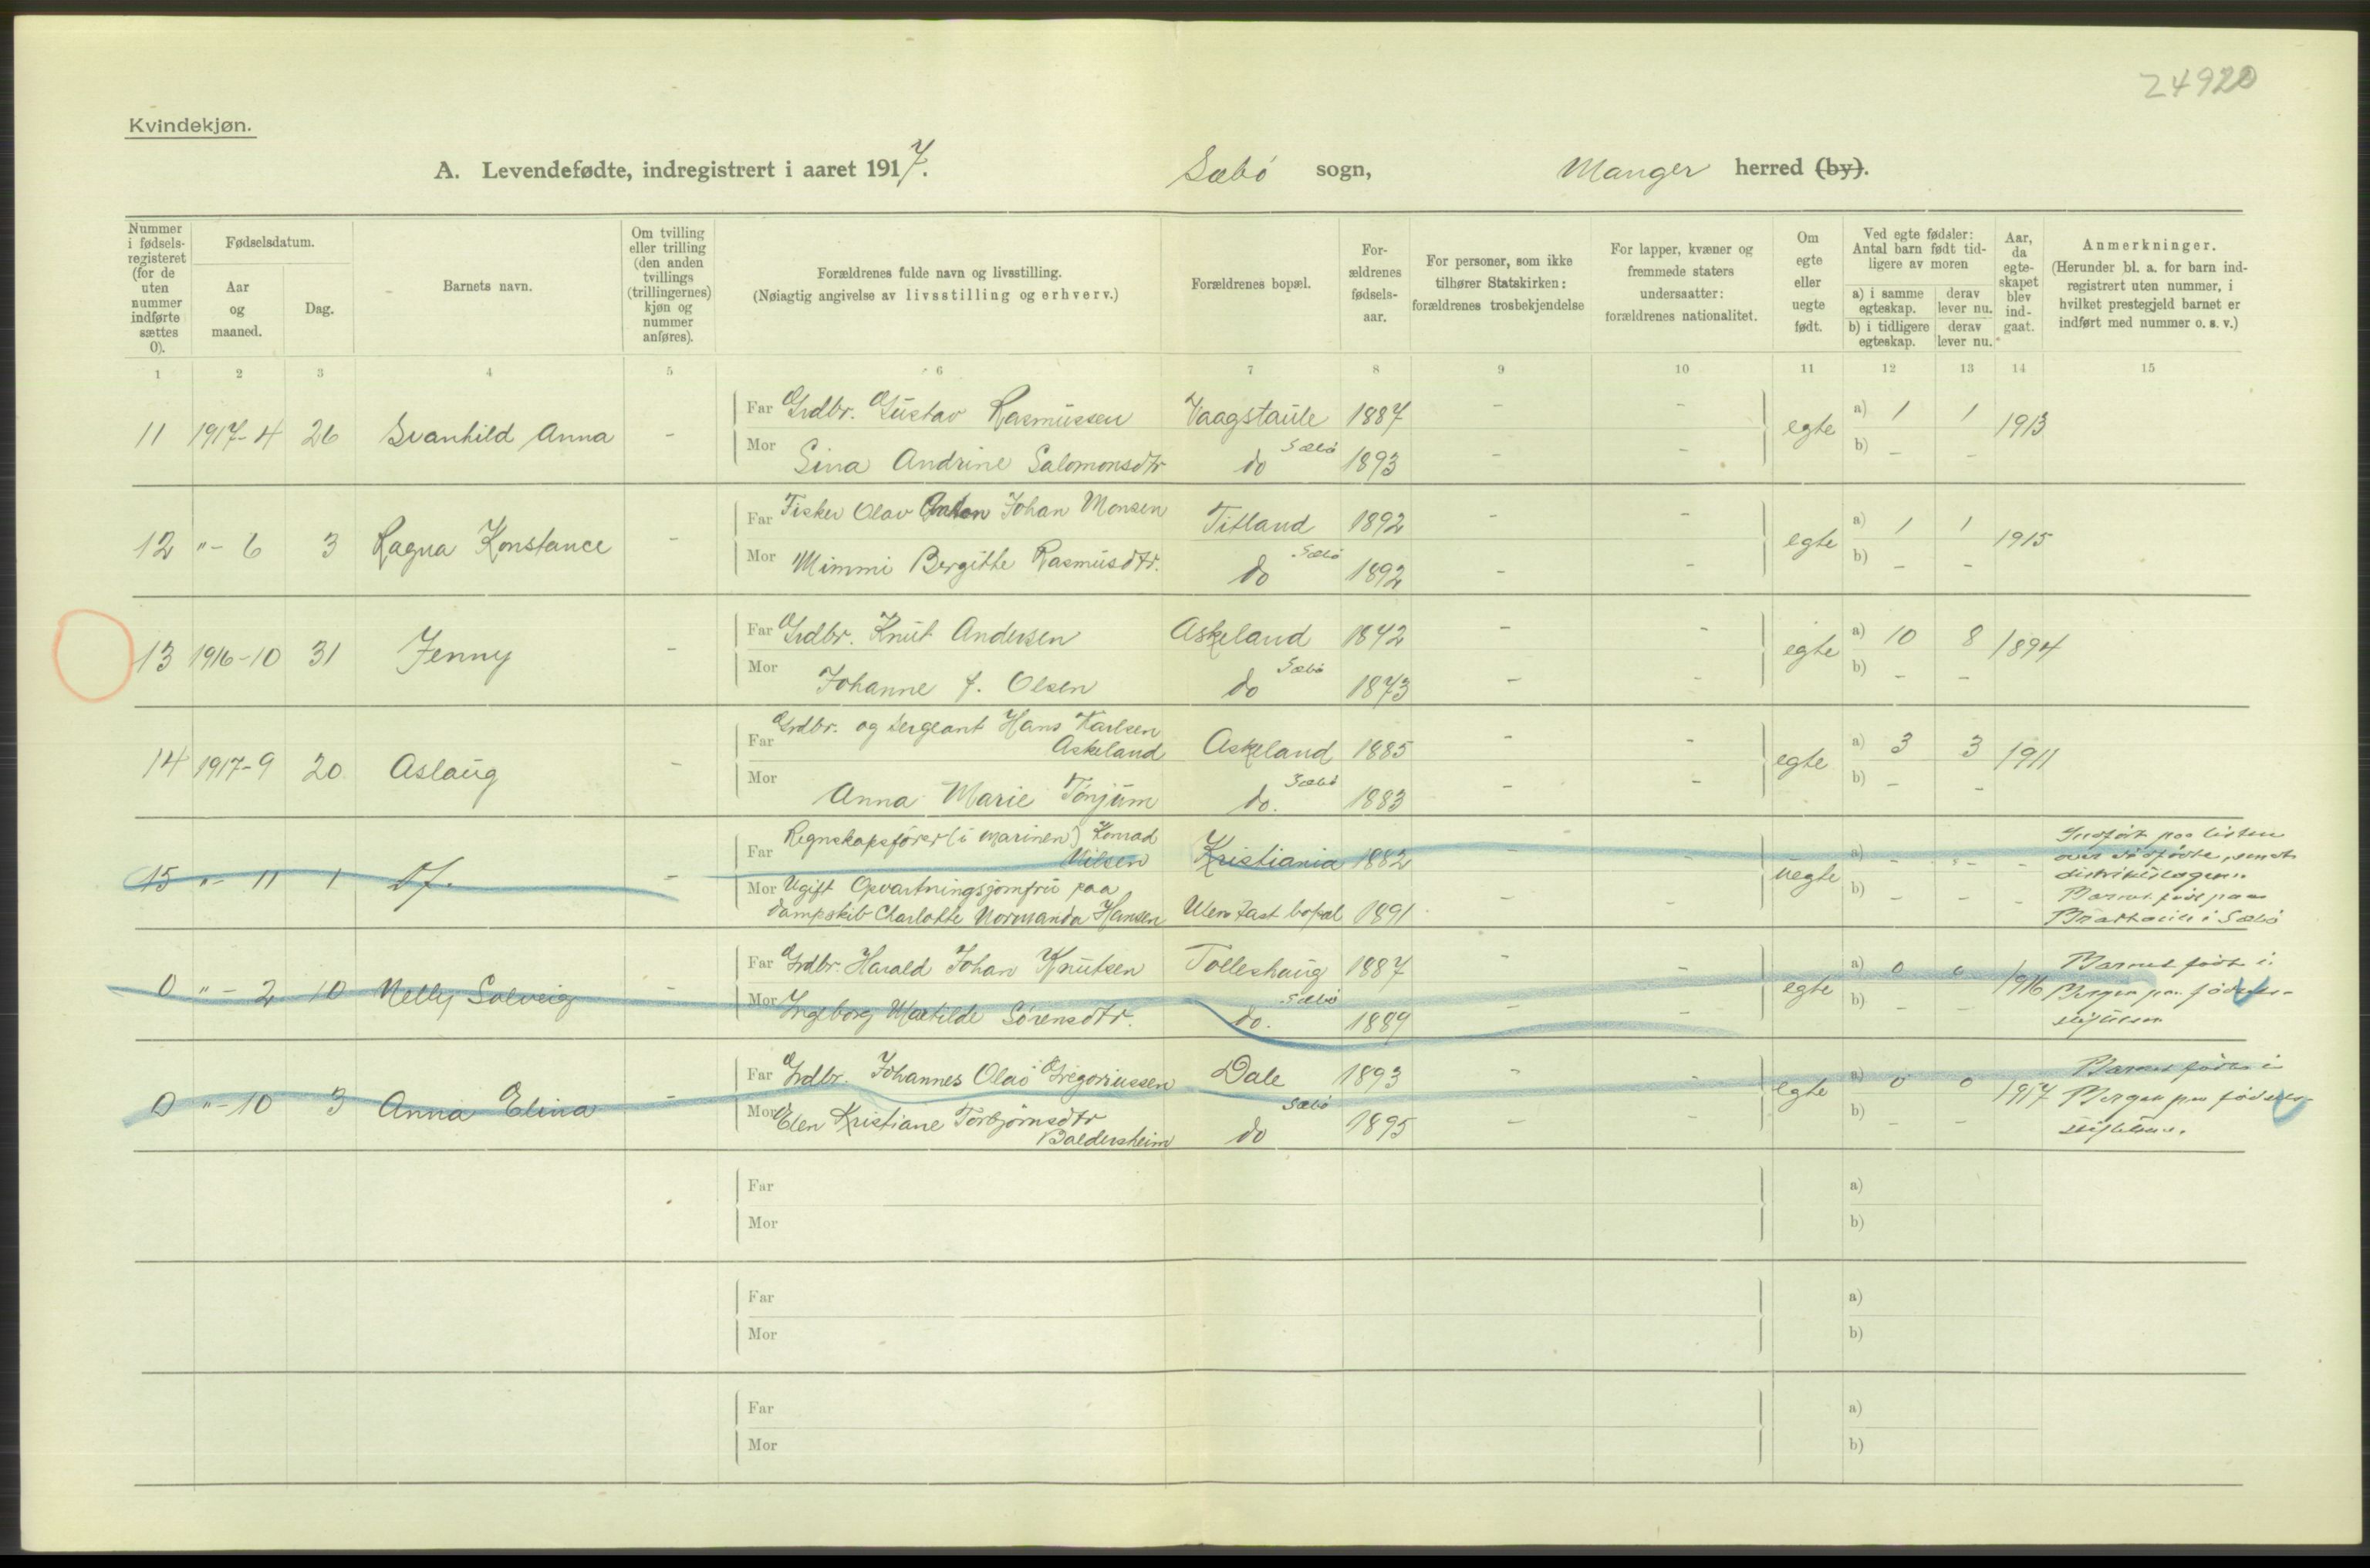 24920
Kvindekjøn.
A. Levendefødte, indregistrert i aaret 1917. Sæbö sogn, Manger herred (by).
Nummer i fødsels-registeret (for de uten nummer indførte sættes 0).
Fødselsdatum.
Aar og maaned.
Dag.
Barnets navn.
Om tvilling eller trilling (den anden tvillings (trillingernes) kjøn og nummer anføres).
Forældrenes fulde navn og livsstilling.
(Nøiagtig angivelse av livsstilling og erhverv.)
Forældrenes bopæl.
For-ældrenes fødsels-aar.
For personer, som ikke tilhører Statskirken: forældrenes trosbekjendelse
For lapper, kvæner og fremmede staters undersaatter: forældrenes nationalitet.
Om egte eller uegte født.
Ved egte fødsler: Antal barn født tid-ligere av moren
a) i samme egteskap. derav lever nu.
b) i tidligere egteskap. derav lever nu.
Aar, da egte-skapet blev ind-gaat.
Anmerkninger.
(Herunder bl. a. for barn ind-registrert uten nummer, i hvilket prestegjeld barnet er indført med nummer o. s. v.)
1 2 3 4 5 6 7 8 9 10 11 12 13 14 15
Far Grdbr. Gustav Rasmussen Vaagstaule 1887 - - a) 1 1
11 1917-4 26 Svanhild Anna - egte 1913
Mor Sina Andrine Salomonsdtr do Sæbö 1893 - - b) - -
Far Fisker Olav Anton Johan Monsen Titland 1892 - - a) 1 1
12 "- 6 3 Ragna Konstance - egte 1915
Mor Mimmi Bergitte Rasmusdtr. do Sæbö 1892 - - b) - -
Far Grdbr. Knut Andersen Askeland 1842 - - a) 10 8
13 1916-10 31 Jenny - egte 1894
Mor Johanne f. Olsen do Sæbö 1873 - - b) - -
Far Grdbr. og Sergeant Hans Karlsen
Askeland Askeland 1885 - - a) 3 3
14 1917-9 20 Aslaug - egte 1911
Mor Anna Marie Tönjum do. Sæbö 1883 - - b) - -
Far Regnskapsförer (i marinen) Konrad
Nilsen Kristiania 1882 - - a) - - -
15 "- 11 1 Df. - uegte
Mor Ugift Opvartningsjomfru paa
dampskib Charlotte Normanda Hansen Uten fast bopæl 1891 - - b) - -
Indfört paa listen
over dödfödte, sendt
distriktslægen.
Barnet födt paa
i Sæbö
Far Grdbr. Harald Johan Knutsen Tolleshaug 1887 - - a) 0 0
0 "- 2 10 Nelly Solveig - egte 1916
Mor Ingeborg Matilde Sörensdtr. do. Sæbö 1889 - - b) - -
Barnet födt i
Bergen paa födsels-
stiftelsen
Far Grdbr. Johannes Olai Gregoriussen Dale 1893 - - a) 0 0
0 "-10 3 Anna Elina - egte 1917
Mor Elen Kristiane Torbjörnsdtr
Baldersheim do Sæbö 1895 - - b) - -
Barnet födt i
Bergen paa födsels-
stiftelsen.
Far a)
Mor b)
Far a)
Mor b)
Far a)
Mor b)